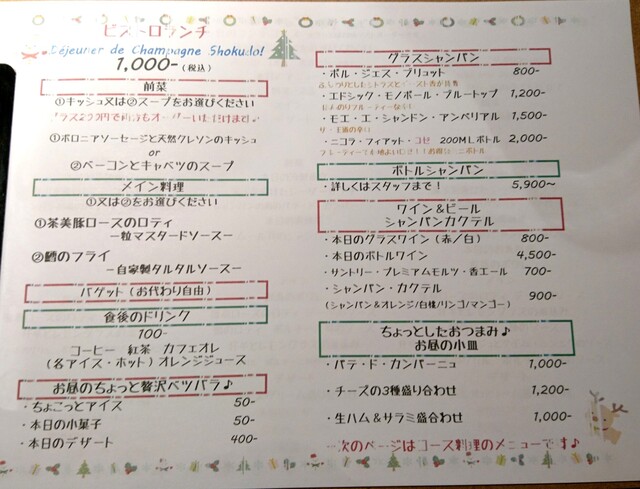 ビストロランチ
Déjeuner de Champagne Shokudo!
1,000-（税込）
前菜
①キッシュ又は②スープをお選びください
プラス200円で両方もオーダーいただけます♪
①ボロニアソーセージと天然クレソンのキッシュ
or
②ベーコンとキャベツのスープ
メイン料理
①又は②をお選びください
①茶美豚ロースのロティ
ー粒マスタードソースー
②鱈のフライ
ー自家製タルタルソースー
バゲット（お代わり自由）
食後のドリンク
100-
コーヒー 紅茶 カフェオレ
（各アイス・ホット）オレンジジュース
お昼のちょっと贅沢ベツバラ♪
・ちょこっとアイス 50-
・本日の小菓子 50-
・本日のデザート 400-
グラスシャンパン
・ポル・ジェス・ブリュット 800-
・エドシック・モノポール・ブルートップ 1,200-
・モエ・エ・シャンドン・アンペリアル 1,500-
・ニコラ・フィアット・ロゼ 200MLボトル 2,000-
ボトルシャンパン
・詳しくはスタッフまで！ 5,900〜
ワイン＆ビール
シャンパンカクテル
・本日のグラスワイン（赤／白） 800-
・本日のボトルワイン 4,500-
・サントリー・プレミアムモルツ・香エール 700-
・シャンパン・カクテル 900-
（シャンパン＆オレンジ/白桃/リンゴ/マンゴー）
ちょっとしたおつまみ♪
お昼の小皿
・パテ・ド・カンパーニュ 1,000-
・チーズの3種盛り合わせ 1,200-
・生ハム＆サラミ盛合わせ 1,000-
次のページはコース料理のメニューです♪